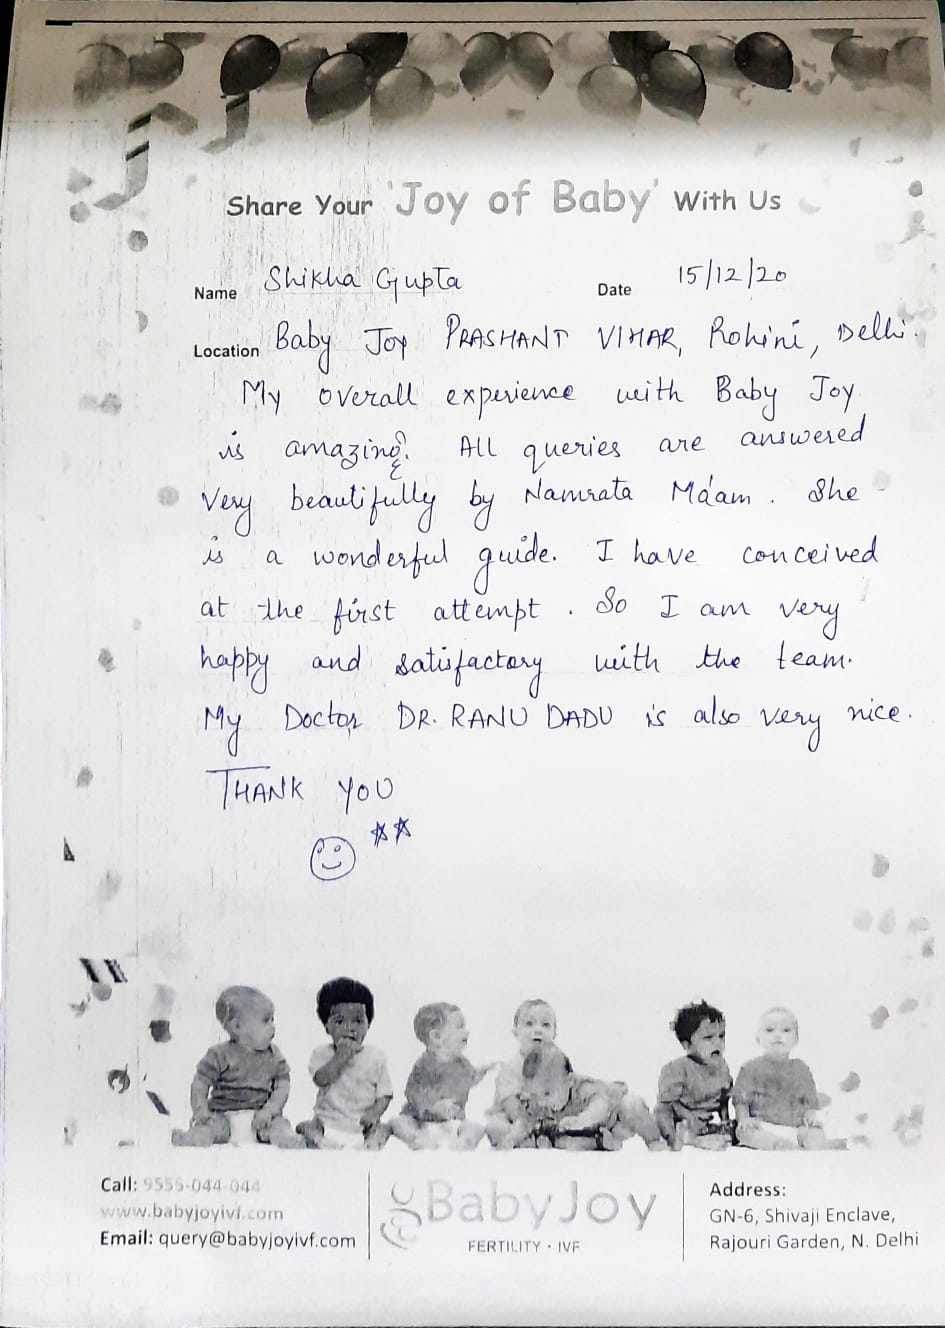 Share Your 'Joy of Baby' With Us
Name Shikha Gupta Date 15/12/20
Location Baby Joy PRASHANT VIHAR, Rohini, Delhi.
My overall experience with Baby Joy
is amazing. All queries are answered
very beautifully by Namrata Ma'am. She
is a wonderful guide. I have conceived
at the first attempt. So I am very
happy and satisfactory with the team.
My Doctor DR. RANU DADU is also very nice.
THANK YOU
Call: 9555-044-044
www.babyjoyivf.com
Email: query@babyjoyivf.com
BabyJoy
FERTILITY · IVF
Address:
GN-6, Shivaji Enclave,
Rajouri Garden, N. Delhi